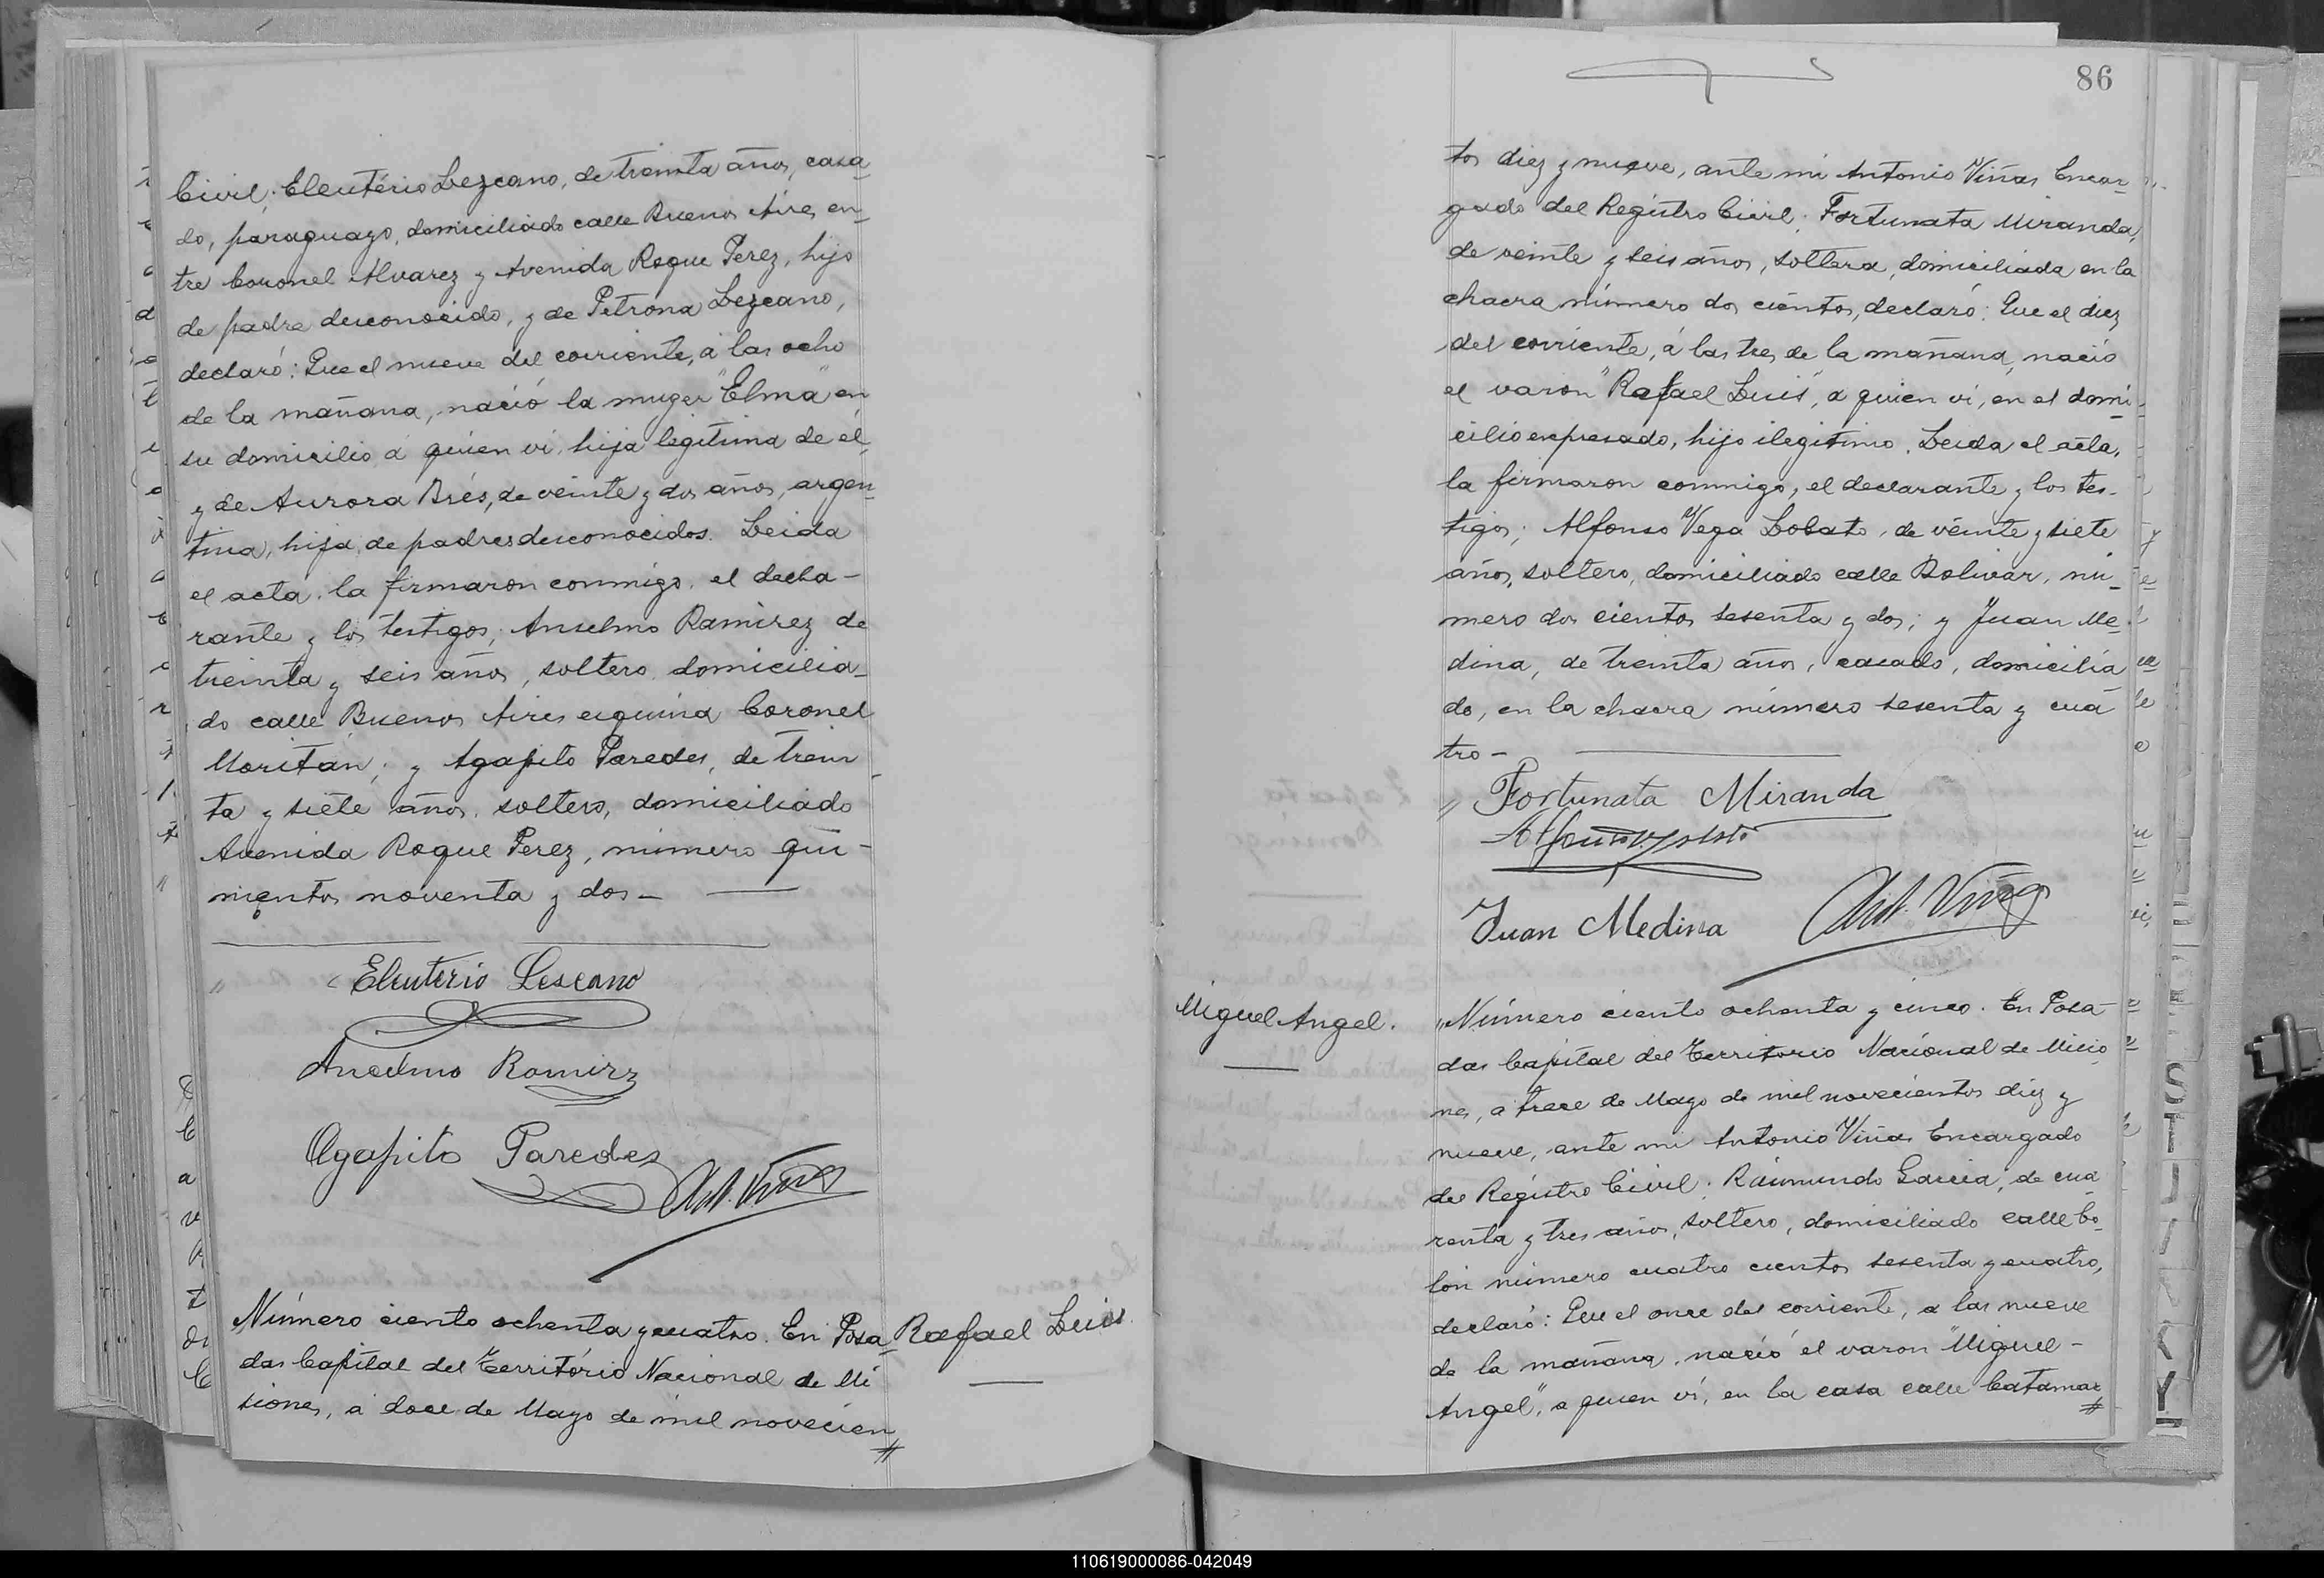 Civil; Eleuterio Lezcano, de treinta años, casa-
do, paraguayo, domiciliado calle Buenos Aires en-
tre Coronel Alvarez y Avenida Roque Perez, hijo
de padre desconocido, y de Petrona Lezcano,
declaró: Que el nueve del corriente, á las ocho
de la mañana, nació la muger "Elma" en
su domicilio á quien vi, hija legitima de él,
y de Aurora Brés, de veinte y dos años, argen-
tina, hija de padres desconocidos. Leida
el acta, la firmaron conmigo, el decla-
rante y los testigos; Anselmo Ramirez de
treinta y seis años, soltero, domicilia-
do calle Buenos Aires esquina Coronel
Moritan; y Agapito Paredes, de trein
ta y siete años, soltero, domiciliado
Avenida Roque Perez, número qui-
nientos noventa y dos—
Eleuterio Lescano
Anselmo Ramirz
Agapito Paredes
Ant. Viñas
Número ciento ochenta y cuatro. En Posa-
Rafael Luis
das Capital del Territorio Nacional de Mi
siones, á doce de Mayo de mil novecien
86
tos diez y nueve, ante mi Antonio Viñas Encar-
gado del Registro Civil; Fortunata Miranda,
de veinte y seis años, soltera, domiciliada en la
chacra número dos cientos, declaró: Que el diez
del corriente, á las tres de la mañana, nació
el varon "Rafael Luis", á quien vi, en el domi-
cilio expresado, hijo ilegitimo. Leida el acta,
la firmaron conmigo, el declarante y los tes-
tigos; Alfonso Vega Lobato, de veinte y siete
años, soltero, domiciliado calle Bolivar, nú-
mero dos cientos sesenta y dos; y Juan Me-
dina, de treinta años, casado, domicilia
do, en la chacra número sesenta y cua
tro—
Fortunata Miranda
Juan Medina
Ant. Viñas
Miguel Angel.
Número ciento ochenta y cinco. En Posa-
das Capital del Territorio Nacional de Misio
nes, á trece de Mayo de mil novecientos diez y
nueve, ante mi Antonio Viñas Encargado
del Registro Civil; Raimundo Garcia, de cua
renta y tres años, soltero, domiciliado calle Co-
lón número cuatro cientos sesenta y cuatro,
declaró: Que el once del corriente, á las nueve
de la mañana, nació el varon "Miguel-
Angel", á quien vi, en la casa calle Catamar
110619000086-042049